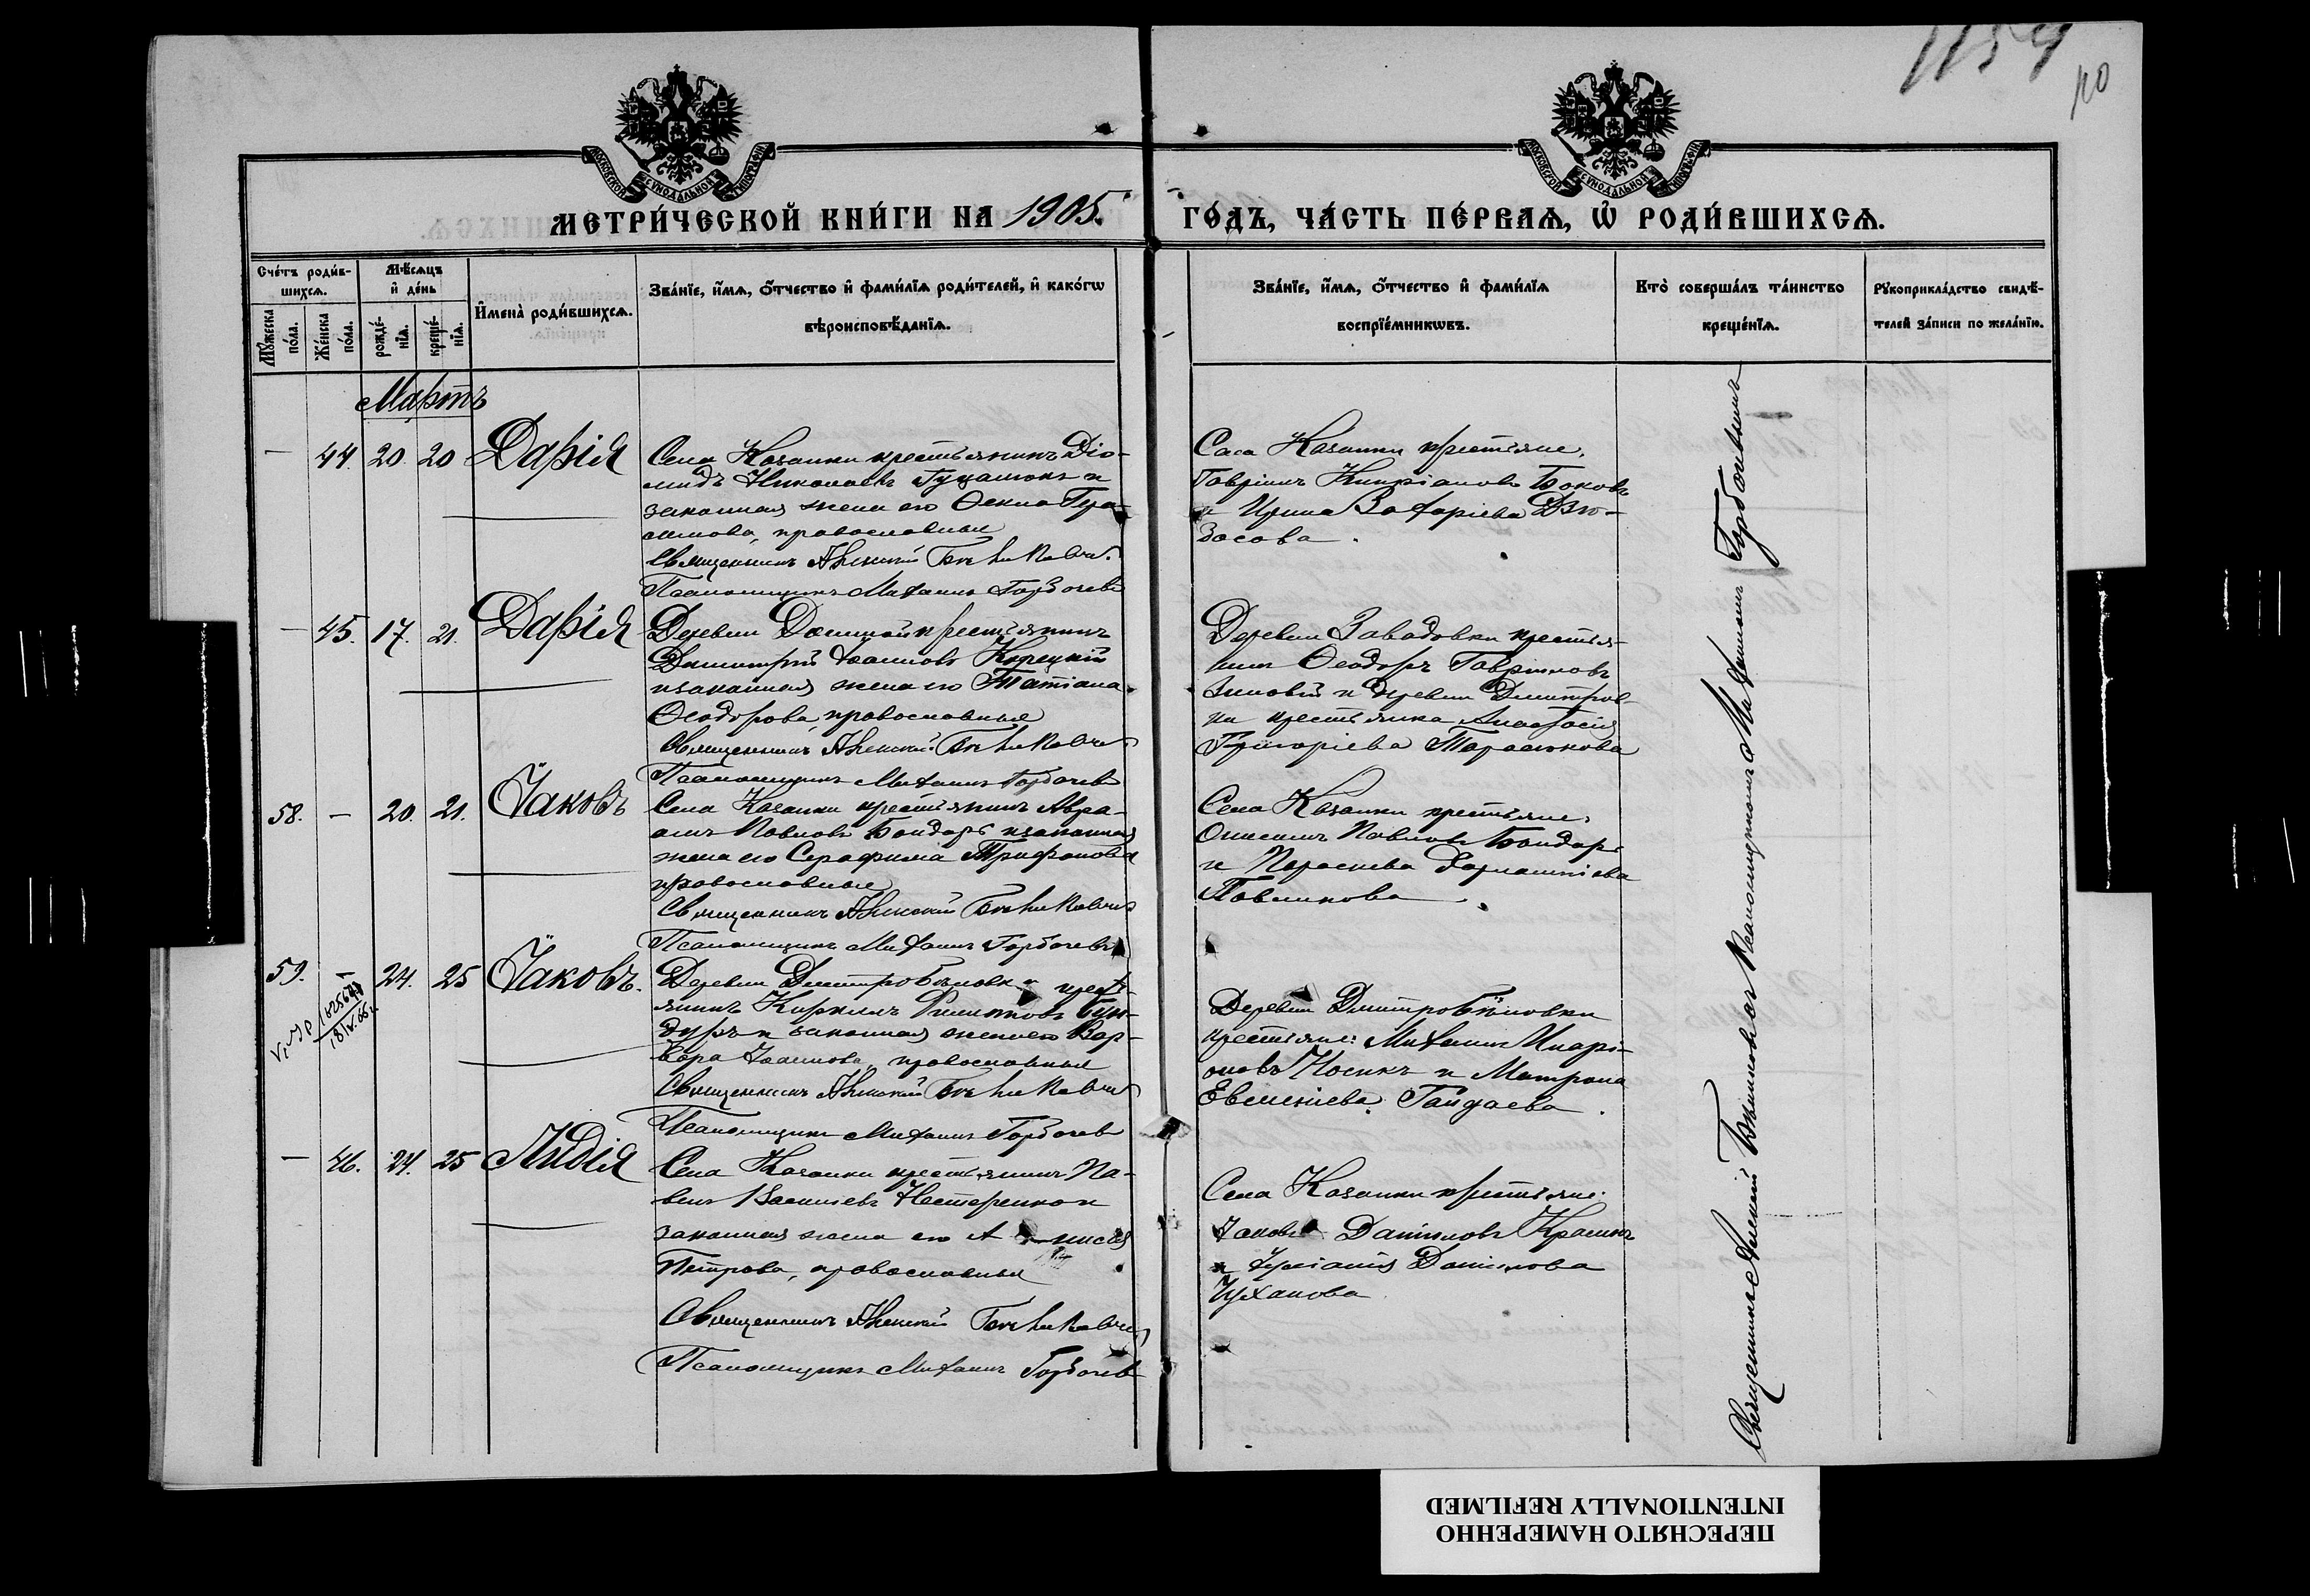 1154
10
МОСКОВСКОЙ СѴНОДАЛЬНОЙ ТИПОГРАФІИ
МОСКОВСКОЙ СѴНОДАЛЬНОЙ ТИПОГРАФІИ
МЕТРИ́ЧЕСКОЙ КНИ́ГИ НА 1905.
ГО́ДЪ, ЧА́СТЬ ПЕ́РВАѦ, Ѽ РОДИ́ВШИХСѦ.
Сче́тъ роди́в-
шихсѧ.
Мꙋ́жеска
по́ла.
Же́нска
по́ла.
Мѣ́сѧцъ
и҆ де́нь
рожде́-
нїѧ.
креще́-
нїѧ.
И҆мена̀ роди́вшихсѧ.
Зва́нїе, и҆́мѧ, ѻ҆́тчество и҆ фами́лїѧ роди́телей, и҆ како́гѡ
вѣроисповѣ́данїѧ.
Зва́нїе, и҆́мѧ, ѻ҆́тчество и҆ фами́лїѧ
воспрїе́мникѡвъ.
Кто̀ соверша́лъ та́инство
креще́нїѧ.
Рꙋкоприкла́дство свидѣ́-
телей за́писи по жела́нїю.
Мартъ
— 44. 20. 20 Дарія
Села Казанки крестьянинъ Діо-
мидъ Николаевъ и
законная жена его Ѳекла Гера-
симова, православные
Священникъ Алексій
Псаломщикъ Михаилъ Горбачевъ
Села Казанки крестьяне:
Гавріилъ Кипріановъ Боковъ
и Ирина Захаріева Дзю-
басова.
— 45. 17. 21. Дарія
Деревни крестьянинъ
Димитрій Іоанновъ Корецкій
и законная жена его Татіана
Ѳеодорова, православные
Священникъ Алексій
Псаломщикъ Михаилъ Горбачевъ
Деревни Завадовки крестья-
нинъ Ѳеодоръ Гавріиловъ
и деревни Дмитров-
ки крестьянка Анастасія
Григоріева Тарасюкова
58. — 20. 21. Іаковъ
Села Казанки крестьянинъ Авра-
амъ Павловъ Бондарь и законная
жена его Серафима Трифонова
православные
Священникъ Алексій
Псаломщикъ Михаилъ Горбачевъ
Села Казанки крестьяне:
Онисимъ Павловъ Бондарь
и Параскева
Павликова
59. — 24. 25 Іаковъ.
Деревни Дмитробѣловки крест-
янинъ Кириллъ Филиповъ Бун-
дуръ и законная жена его Вар-
вара Іоаннова, православные
Священникъ Алексій
Псаломщикъ Михаилъ Горбачевъ
Деревни Дмитробѣловки
крестьяне: Михаилъ Иларі-
оновъ Носикъ и Матрона
Евменіева Гайдаева.
— 46. 24. 25 Лидія
Села Казанки крестьянинъ Па-
велъ Васильевъ Нестеренко и
законная жена его
Петрова, православные
Священникъ Алексій
Псаломщикъ Михаилъ Горбачевъ
Села Казанки крестьяне:
Іаковъ Даниловъ Красикъ
и Іуліанія Данилова
Цуканова
Священникъ Алексій съ Псаломщикомъ Михаиломъ Горбачевымъ
ПЕРЕСНЯТО НАМЕРЕННО
INTENTIONALLY REFILMED